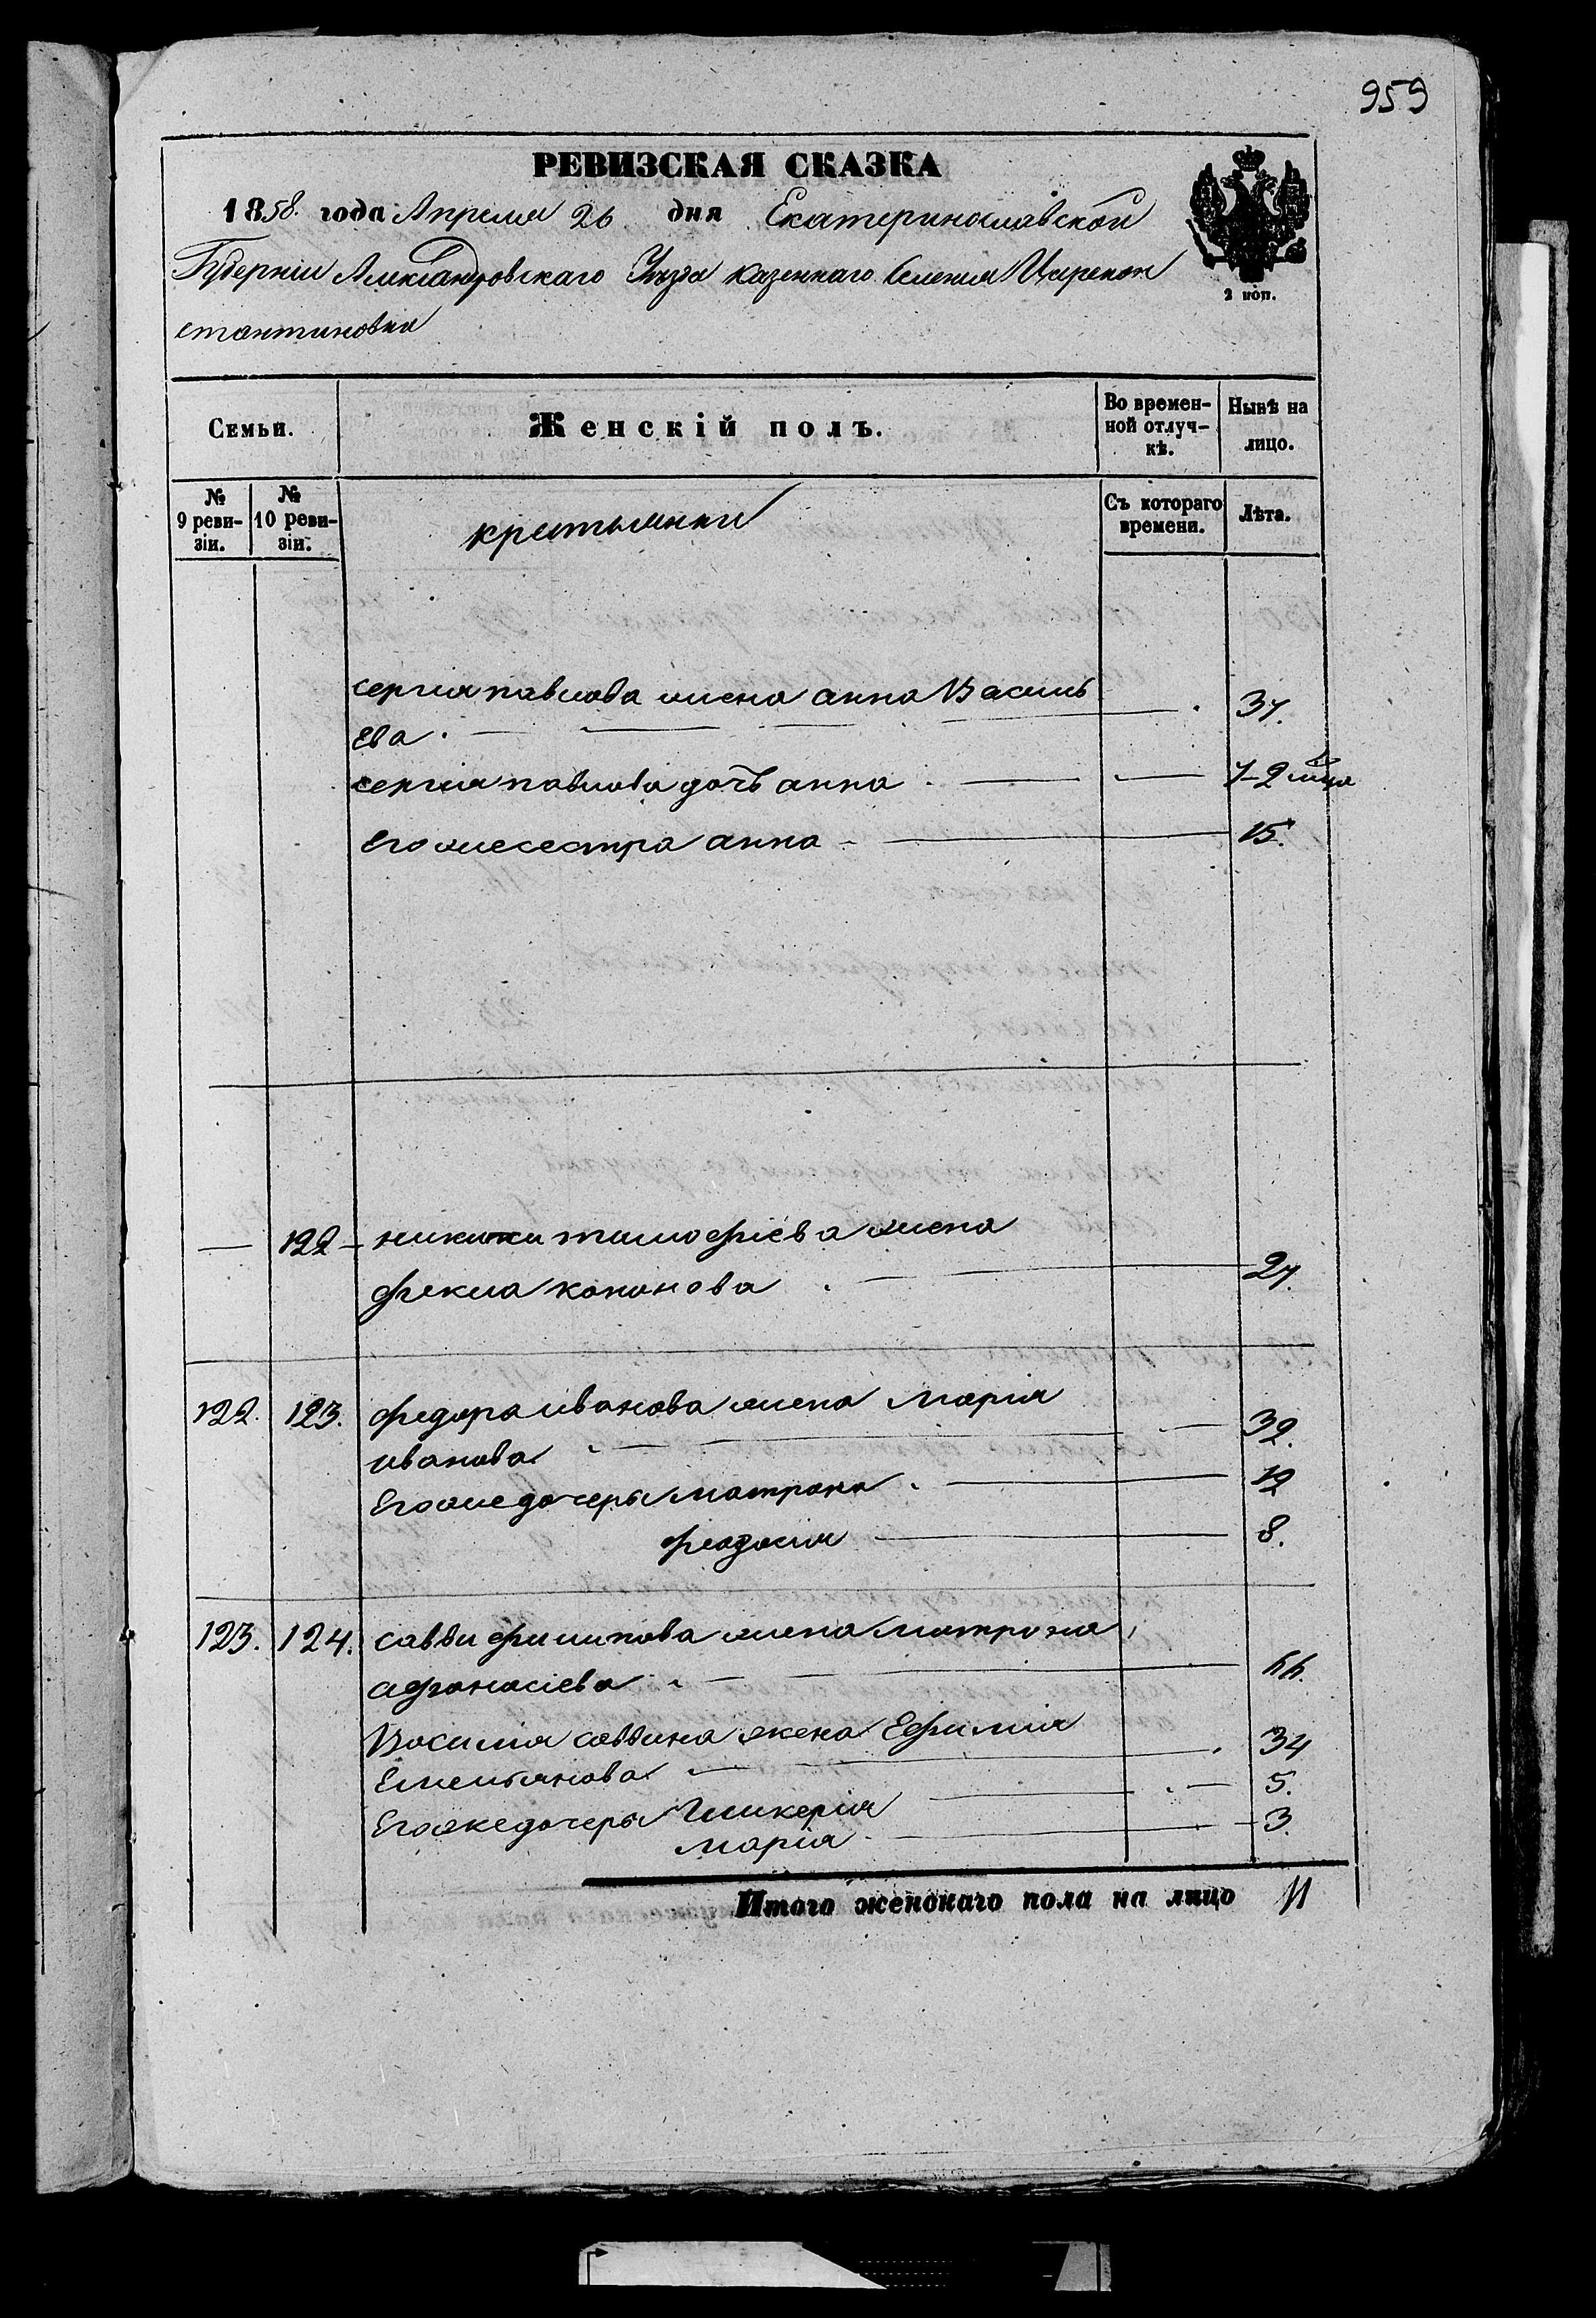 959
РЕВИЗСКАЯ СКАЗКА
1858. года Апреля 26 дня Екатеринославской
Губерніи Александровскаго Уѣзда казеннаго Селенія Царекон
стантиновки
2 коп.
Семьи. Женскій полъ. Во времен- Нынѣ на
ной отлуч- лицо.
кѣ.
№ № Съ котораго Лѣта.
9 реви- 10 реви- времени.
зіи. зіи.
крестьянки
сергия павлова жена анна Василь
Ева 37.
сергия павлова дочъ анна 7-2 мца
Его же сестра анна 15.
— 122 никиты тимофіева жена
фекла кононова 27.
122. 123. федора иванова жена марія
иванова 32.
Его же дочеры матрона 12
феодосія 8.
123. 124. саввы филипова жена матрона
афонасіева
Василия саввина жена Ефимія
Емельянова 34
Его же дочеры Гликерія 5.
марія 3
Итого женскаго пола на лицо 11